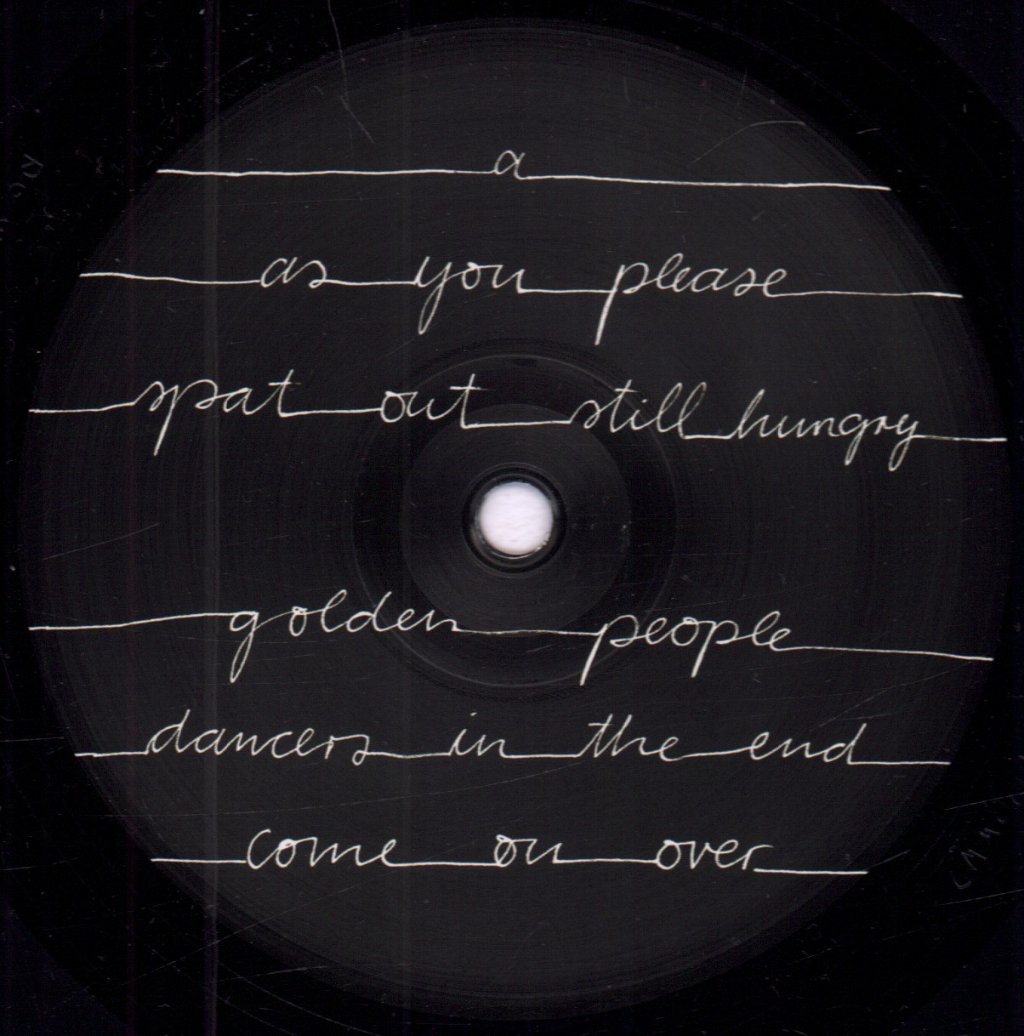 a
as you please
spat out still hungry
golden people
dancers in the end
come on over